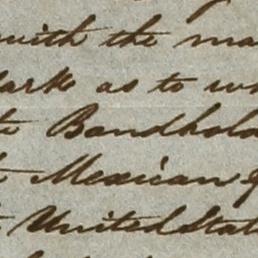 with the ma
ark as to w
Bandhold
Mexican
United Stat